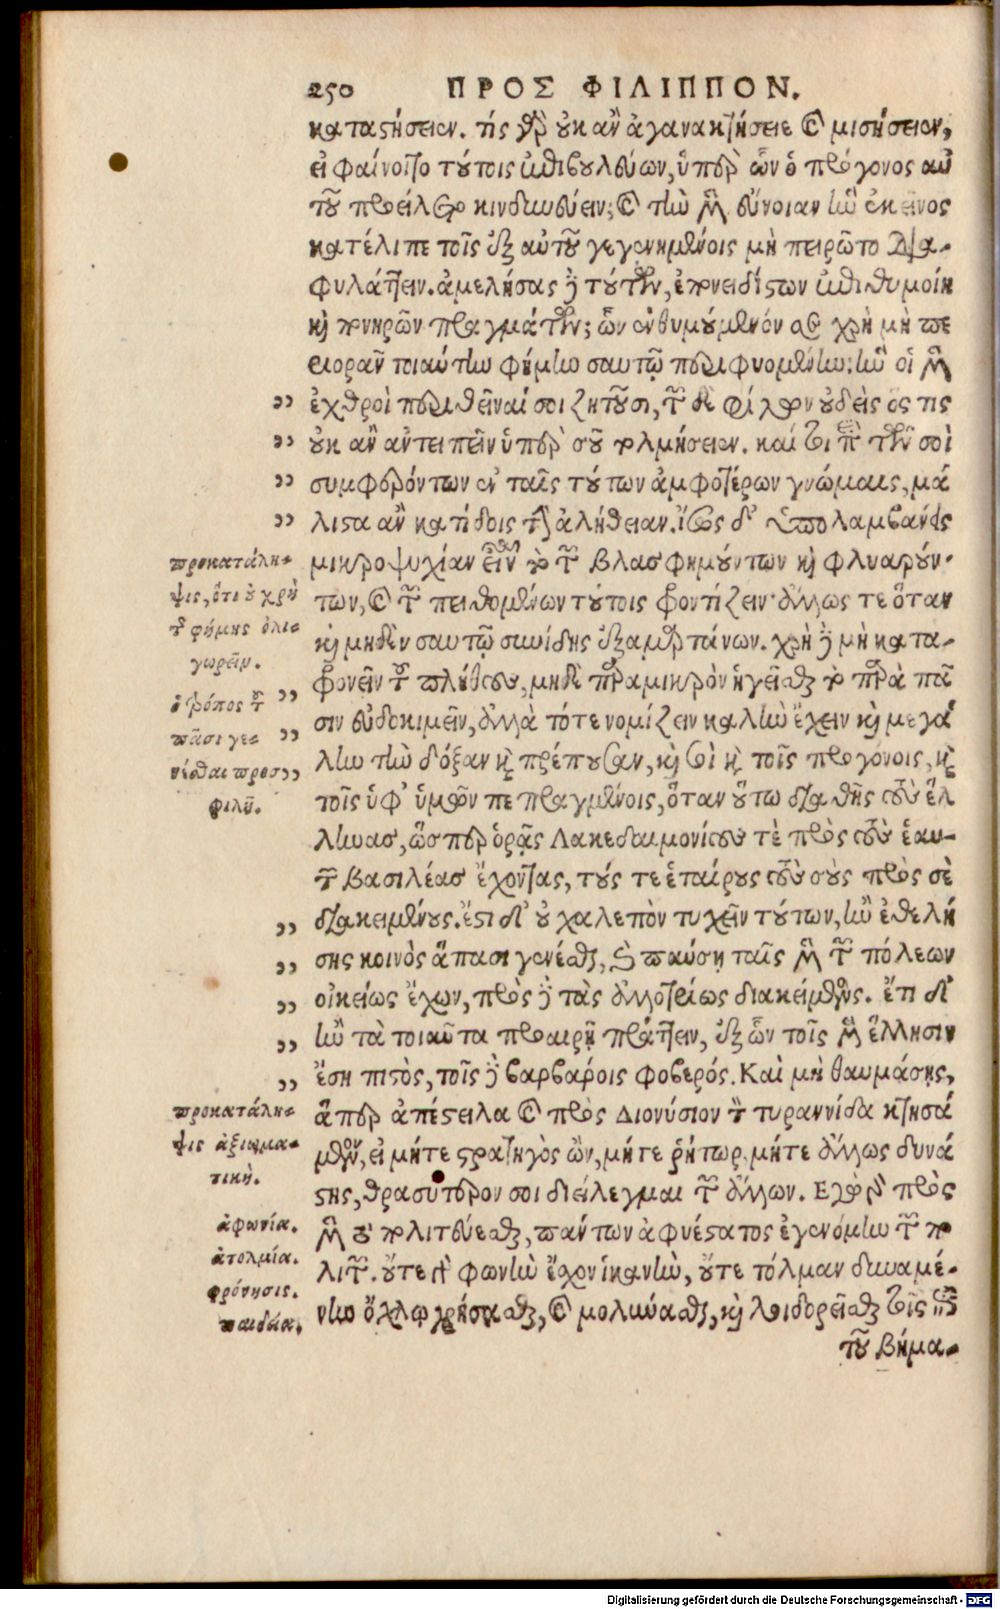 250 ΠΡΟΣ ΦΙΛΙΠΠΟΝ.
καταστήσειεν. τίς γὰρ οὐκ ἂν ἀγανακτήσειε καὶ μισήσειεν,
εἰ φαίνοιτο τούτοις ἐπιβουλεύων, ὑπὲρ ὧν ὁ πρόγονος αὐ
τοῦ προείλετο κινδυνεύειν; καὶ τὴν μὲν εὔνοιαν ἣν ἐκεῖνος
κατέλιπε τοῖς ἐξ αὐτοῦ γεγενημένοις μὴ πειρῷτο δια-
φυλάττειν. ἀμελήσας δὲ τούτων, ἐπονειδίστων ἐπιθυμοίη
καὶ πονηρῶν πραγμάτων; ὧν ἐνθυμούμενόν σε χρὴ μὴ πε
ριορᾶν τοιαύτην φήμην σαυτῷ περιφυομένην: ἣν οἱ μὲν
ἐχθροὶ περιθεῖναί σοι ζητοῦσι, τῶν δὲ φίλων οὐδεὶς ὅς τις
οὐκ ἂν ἀντειπεῖν ὑπὲρ σοῦ τολμήσειεν. καί τοι περὶ τῶν σοὶ
συμφερόντων ἐν ταῖς τούτων ἀμφοτέρων γνώμαις, μά
λιστα ἂν κατίδοις τὴν ἀλήθειαν. ἴσως δ' ὑπολαμβάνεις
μικροψυχίαν εἶναι τὸ τῶν βλασφημούντων καὶ φλυαρούν-
των, καὶ τῶν πειθομένων τούτοις φροντίζειν· ἄλλως τε ὅταν
καὶ μηδὲν σαυτῷ συνίδῃς ἐξαμαρτάνων. χρὴ δὲ μὴ κατα-
φρονεῖν τοῦ πλήθους, μηδὲ παρὰ μικρὸν ἡγεῖσθαι τὸ παρὰ πᾶ
σιν εὐδοκιμεῖν, ἀλλὰ τότε νομίζειν καλὴν ἔχειν καὶ μεγά
λην τὴν δόξαν καὶ πρέπουσαν, καὶ σοὶ καὶ τοῖς προγόνοις, καὶ
τοῖς ὑφ' ὑμῶν πεπραγμένοις, ὅταν οὕτω διαθῇς τοὺς ἕλ
ληνας, ὥσπερ ὁρᾷς Λακεδαιμονίους τὲ πρὸς τοὺς ἑαυ-
τῶν βασιλέας ἔχοντας, τούς τε ἑταίρους τοὺς σοὺς πρὸς σὲ
διακειμένους. ἔστι δ' οὐ χαλεπὸν τυχεῖν τούτων, ἢν ἐθελή
σῃς κοινὸς ἅπασι γενέσθαι, καὶ παύσῃ ταῖς μὲν τῶν πόλεων
οἰκείως ἔχων, πρὸς δὲ τὰς ἀλλοτρίως διακείμενος. ἔτι δ'
ἢν τὰ τοιαῦτα προαιρῇ πράττειν, ἐξ ὧν τοῖς μὲν ἕλλησιν
ἔσῃ πιστὸς, τοῖς δὲ βαρβάροις φοβερός. Καὶ μὴ θαυμάσῃς,
ἅπερ ἀπέστειλα καὶ πρὸς Διονύσιον τὴν τυραννίδα κτησά
μενον, εἰ μήτε στρατηγὸς ὢν, μήτε ῥήτωρ, μήτε ἄλλως δυνά
στης, θρασύτερόν σοι διείλεγμαι τῶν ἄλλων. Ἐγὼ γὰρ πρὸς
μὲν τὸ πολιτεύεσθαι, πάντων ἀφυέστατος ἐγενόμην τῶν πο
λιτῶν. οὔτε γὰρ φωνὴν ἔχον ἱκανὴν, οὔτε τόλμαν δυναμέ-
νην ὄχλῳ χρῆσθαι, καὶ μολύνεσθαι, καὶ λοιδορεῖσθαι τοῖς ἐπὶ
τοῦ βήμα-
προκατάλη-
ψις, ὅτι οὐ χρὴ
τῆς φήμης ὀλι-
γωρεῖν.
ὁ τρόπος τοῦ
πᾶσι γε-
νέσθαι προσ
φιλῆ.
προκατάλη-
ψις ἀξιωμα-
τική.
ἀφωνία.
ἀτολμία.
φρόνησις.
παιδεία.
Digitalisierung gefördert durch die Deutsche Forschungsgemeinschaft - DFG